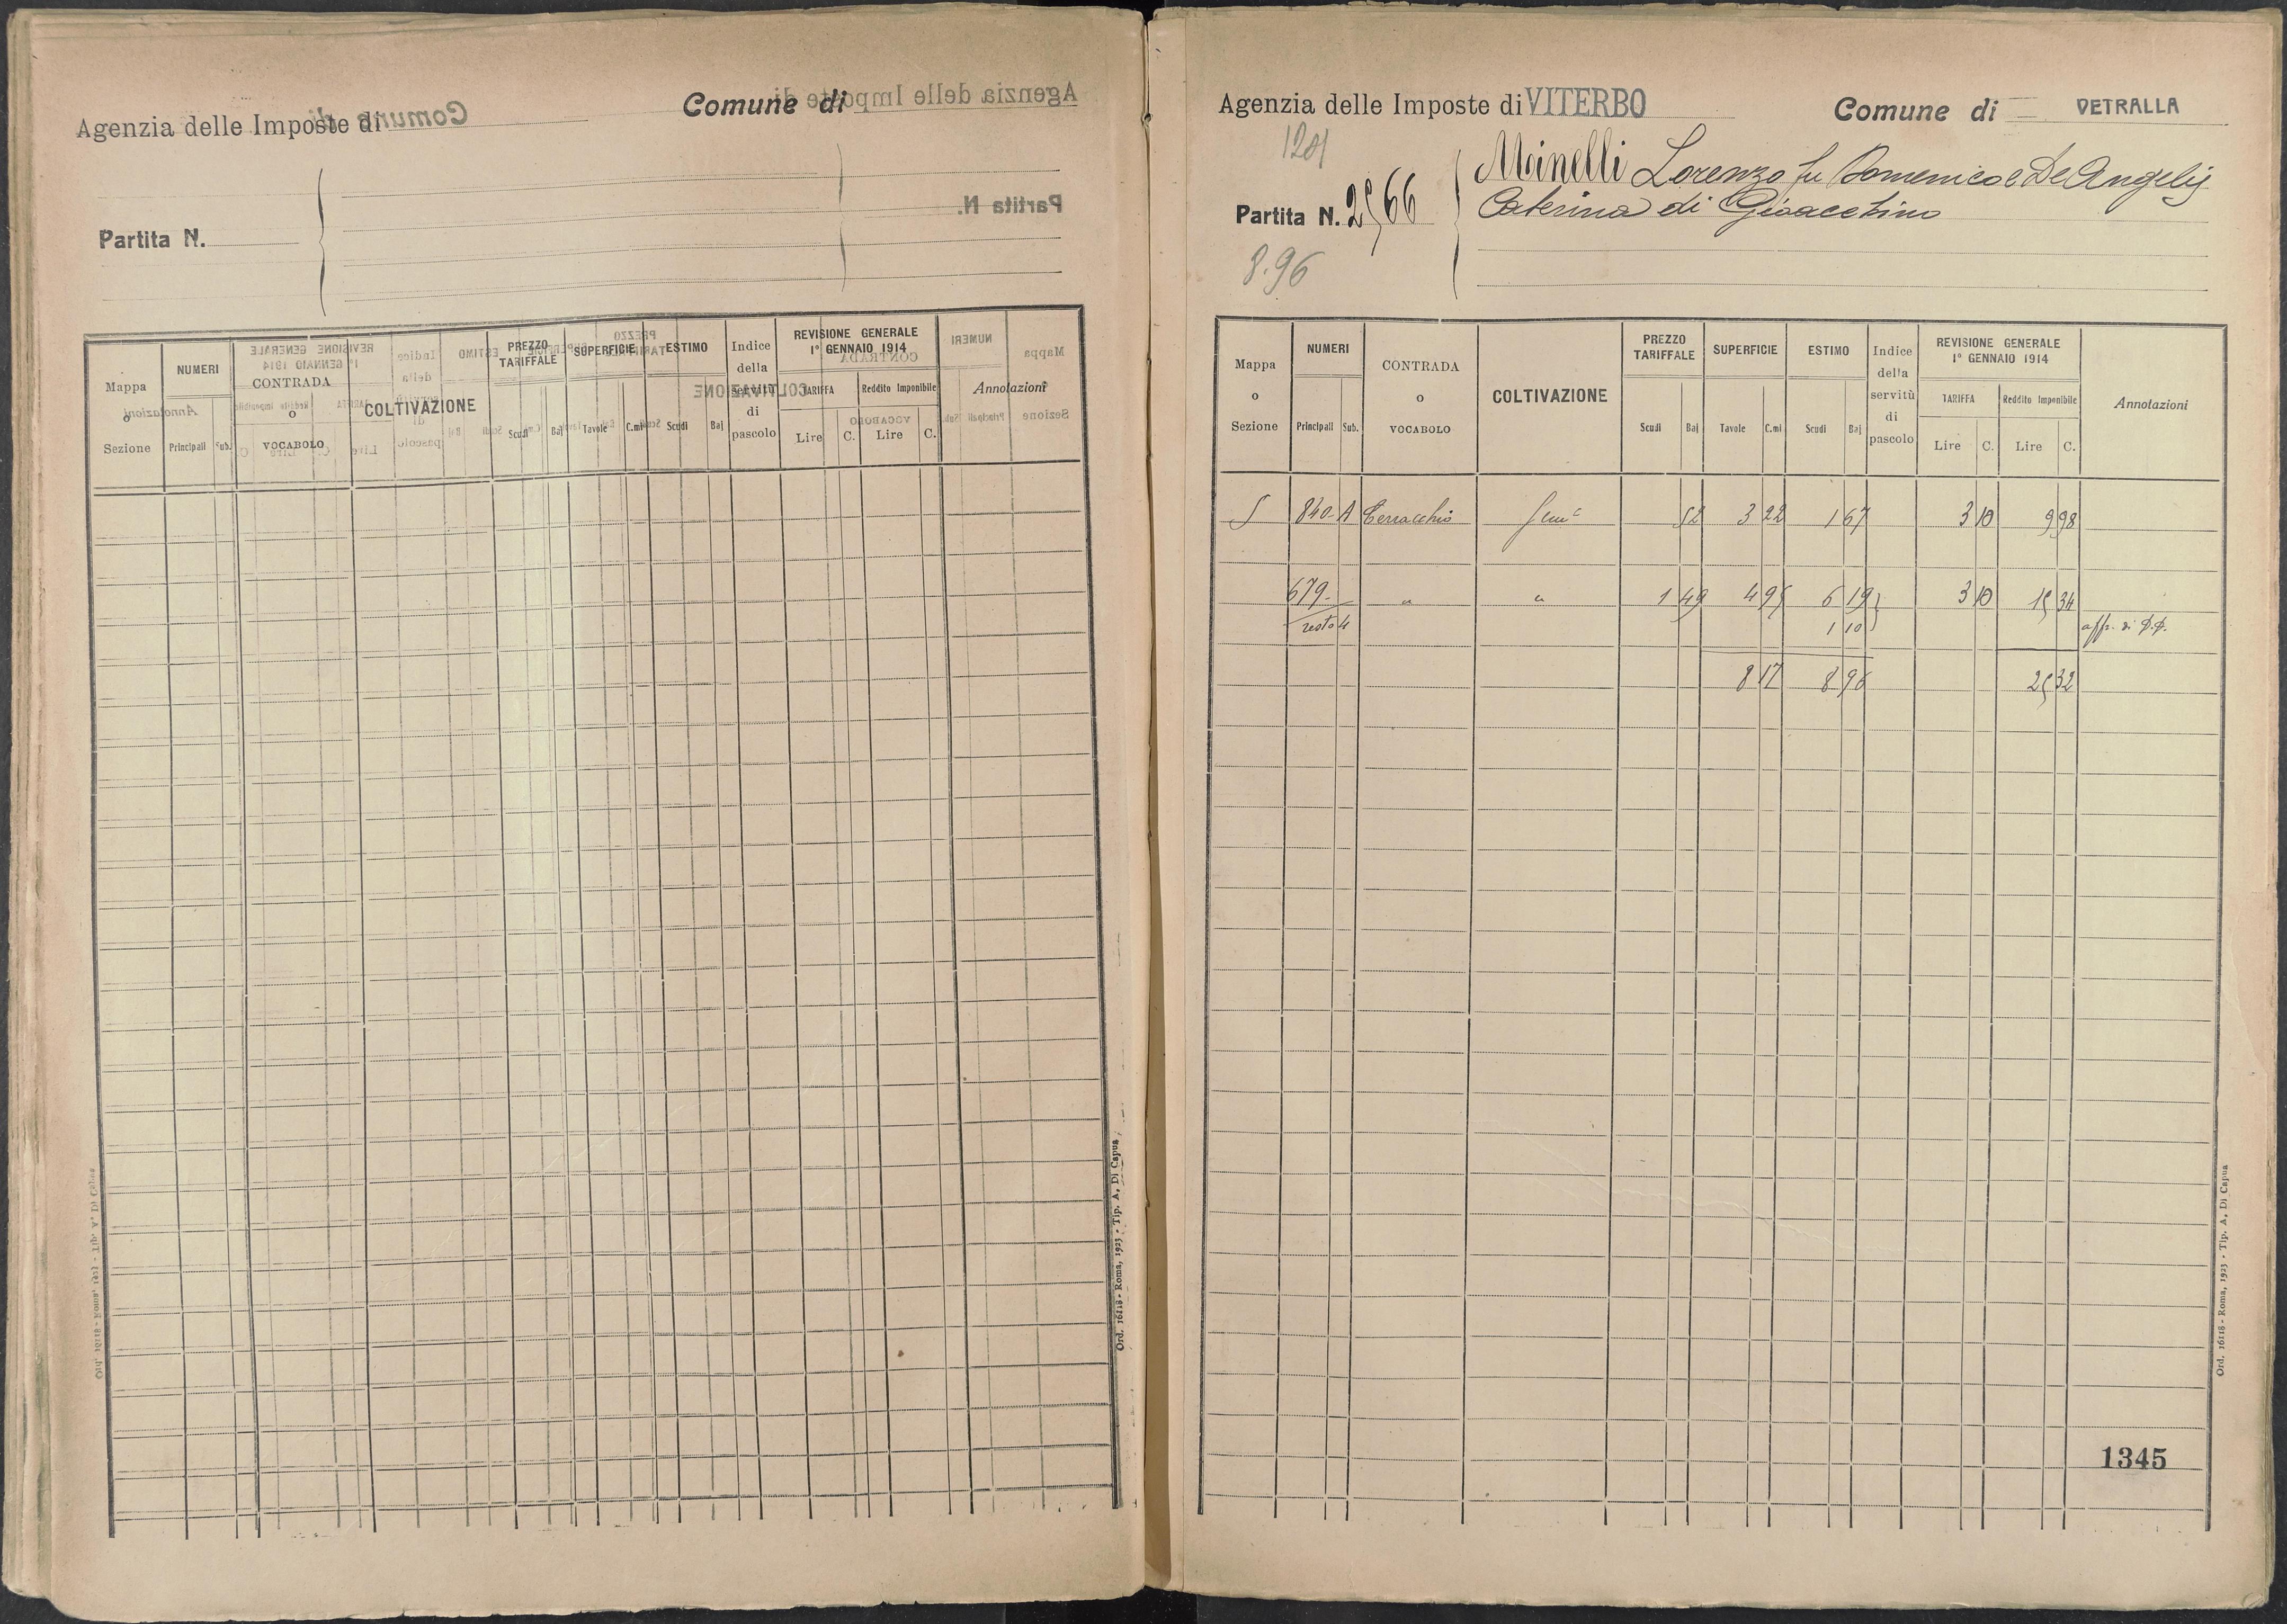 Agenzia delle Imposte di
Comune di
Partita N.
Mappa o Sezione
NUMERI
Principali
Sub.
CONTRADA
o
VOCABOLO
COLTIVAZIONE
PREZZO
TARIFFALE
Scudi
Baj
SUPERFICIE
Tavole
C.mi
ESTIMO
Scudi
Baj
Indice
della
servitù
di
pascolo
REVISIONE GENERALE
1° GENNAIO 1914
TARIFFA
Reddito Imponibile
Lire C. Lire C.
Annotazioni
Ord. 16118 - Roma, 1923 - Tip. A. Di Capua
Agenzia delle Imposte di VITERBO
Comune di VETRALLA
1201
Partita N. 2566
Lorenzo fu Domenico e De Angelis
Caterina di Gioacchino
8.96
Mappa
o
Sezione
NUMERI
Principali
Sub.
CONTRADA
o
VOCABOLO
COLTIVAZIONE
PREZZO
TARIFFALE
Scudi
Baj
SUPERFICIE
Tavole
C.mi
ESTIMO
Scudi
Baj
Indice
della
servitù
di
pascolo
REVISIONE GENERALE
1° GENNAIO 1914
TARIFFA
Reddito Imponibile
Lire C. Lire C.
Annotazioni
5 840 A 52 3 22 1 67 3 10 9 98
679 " " 1 49 4 95 6 19 3 10 15 34
resto 4 1 10 affr. di D.P.
8 17 8 96 25 32
1345
Ord. 16118 - Roma, 1923 - Tip. A. Di Capua